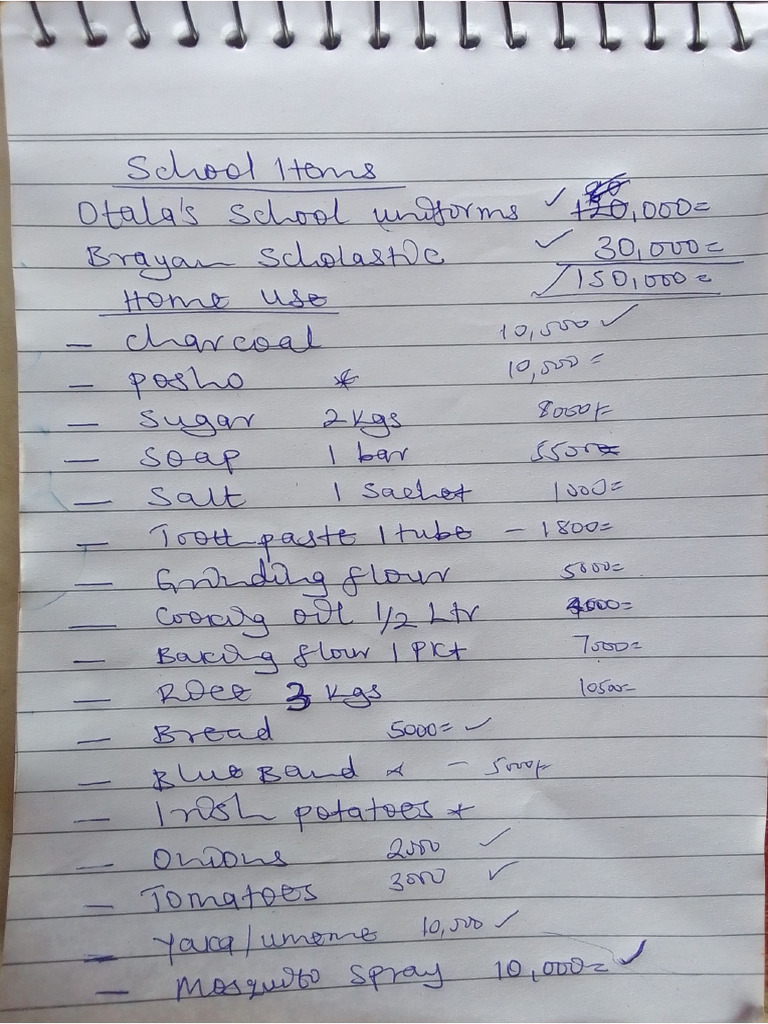 School Items
Otala's School uniforms ✓ 120,000=
Brayan Scholastic ✓ 30,000=
✓ 150,000=
Home Use
— Charcoal 10,500 ✓
— Posho * 10,500=
— Sugar 2 Kgs 8000/=
— Soap 1 bar 5500=
— Salt 1 Sachet 1000=
— Tooth paste 1 tube — 1800=
— Grinding flour 5000=
— Cooking oil 1/2 Ltr 4000=
— Baking flour 1 Pkt 7000=
— Rice 3 Kgs 10500=
— Bread 5000= ✓
— Blue Band — 5000/=
— Irish potatoes *
— Onions 2000 ✓
— Tomatoes 3000 ✓
— Yaka/umeme 10,500 ✓
— Mosquito Spray 10,000= ✓